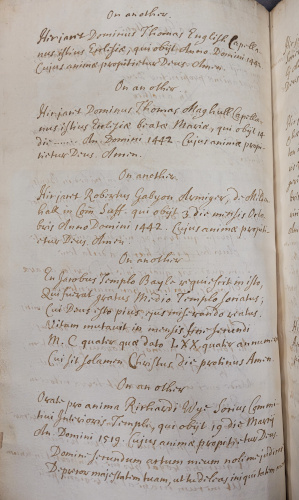 On another.
Hic jacet Dominus Thomas English Capella-
nus istius Ecclesiæ, qui obijt Anno Domini 144
Cujus animæ propitietur Deus. Amen.
On another
Hic jacet Dominus Thomas Maghull Capella-
nus istius Ecclesiæ beatæ Mariæ, qui obijt 14
die An. Domini 1442. Cujus animæ propi-
tietur Deus. Amen.
On another
Hic jacet Robertus Gabyon Armiger, de Milden
hall in Com. Suff. qui obijt 3 die mensis Octo-
bris Anno Domini 1442. Cujus animæ propiti-
etur Deus. Amen
On another
En Jacobus Templo Bayle requiescit in isto,
Qui fuerat gratus Medio Templo sociatus;
Cui Deus esto pius, ejus miserando reatus.
Vitam mutavit in mensis fine secundi
M. C quater quæ dato LXX, quater annumer
Cui sit solamen Christus, die protinus Amen.
On another
Orate pro anima Richardi Wye Socius Comm
tivi Interioris Templi, qui obijt 19 die Marcij
An. Domini 1519. Cujus animæ propitietur Deus.
Domine secundum actum meum noli me judicar
Deprecor majestatem tuam, ut tu deleas iniquitatem